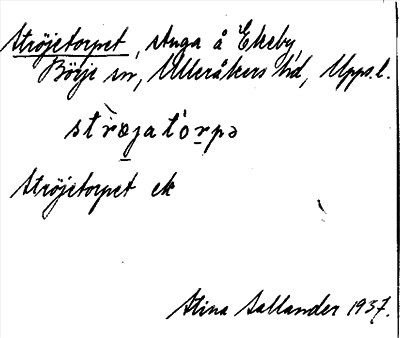 Ströjetorpet, stuga å Ekeby,
Börje sn, Ulleråkers hd, Upps. l.
strø̀jatórpə
Ströjetorpet ek
Stina Sallander 1937.